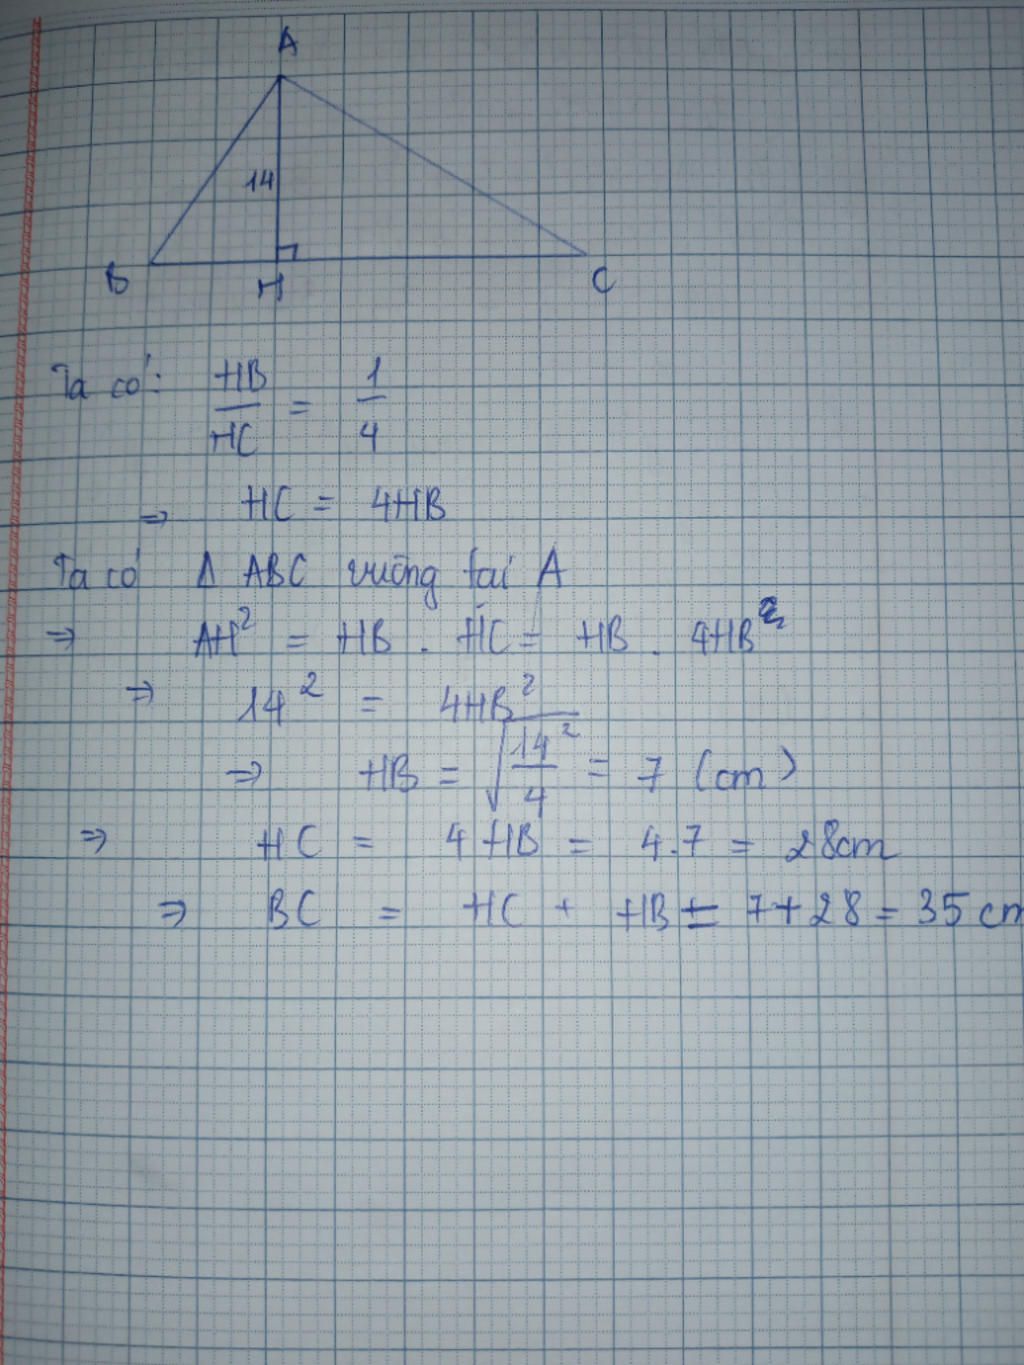 A
14
B H C
Ta có: HB/HC = 1/4
=> HC = 4HB
Ta có Δ ABC vuông tại A
=> AH² = HB . HC = HB . 4HB
=> 14² = 4HB²
=> HB = √(14²/4) = 7 (cm)
=> HC = 4HB = 4.7 = 28cm
=> BC = HC + HB = 7+28 = 35 cm